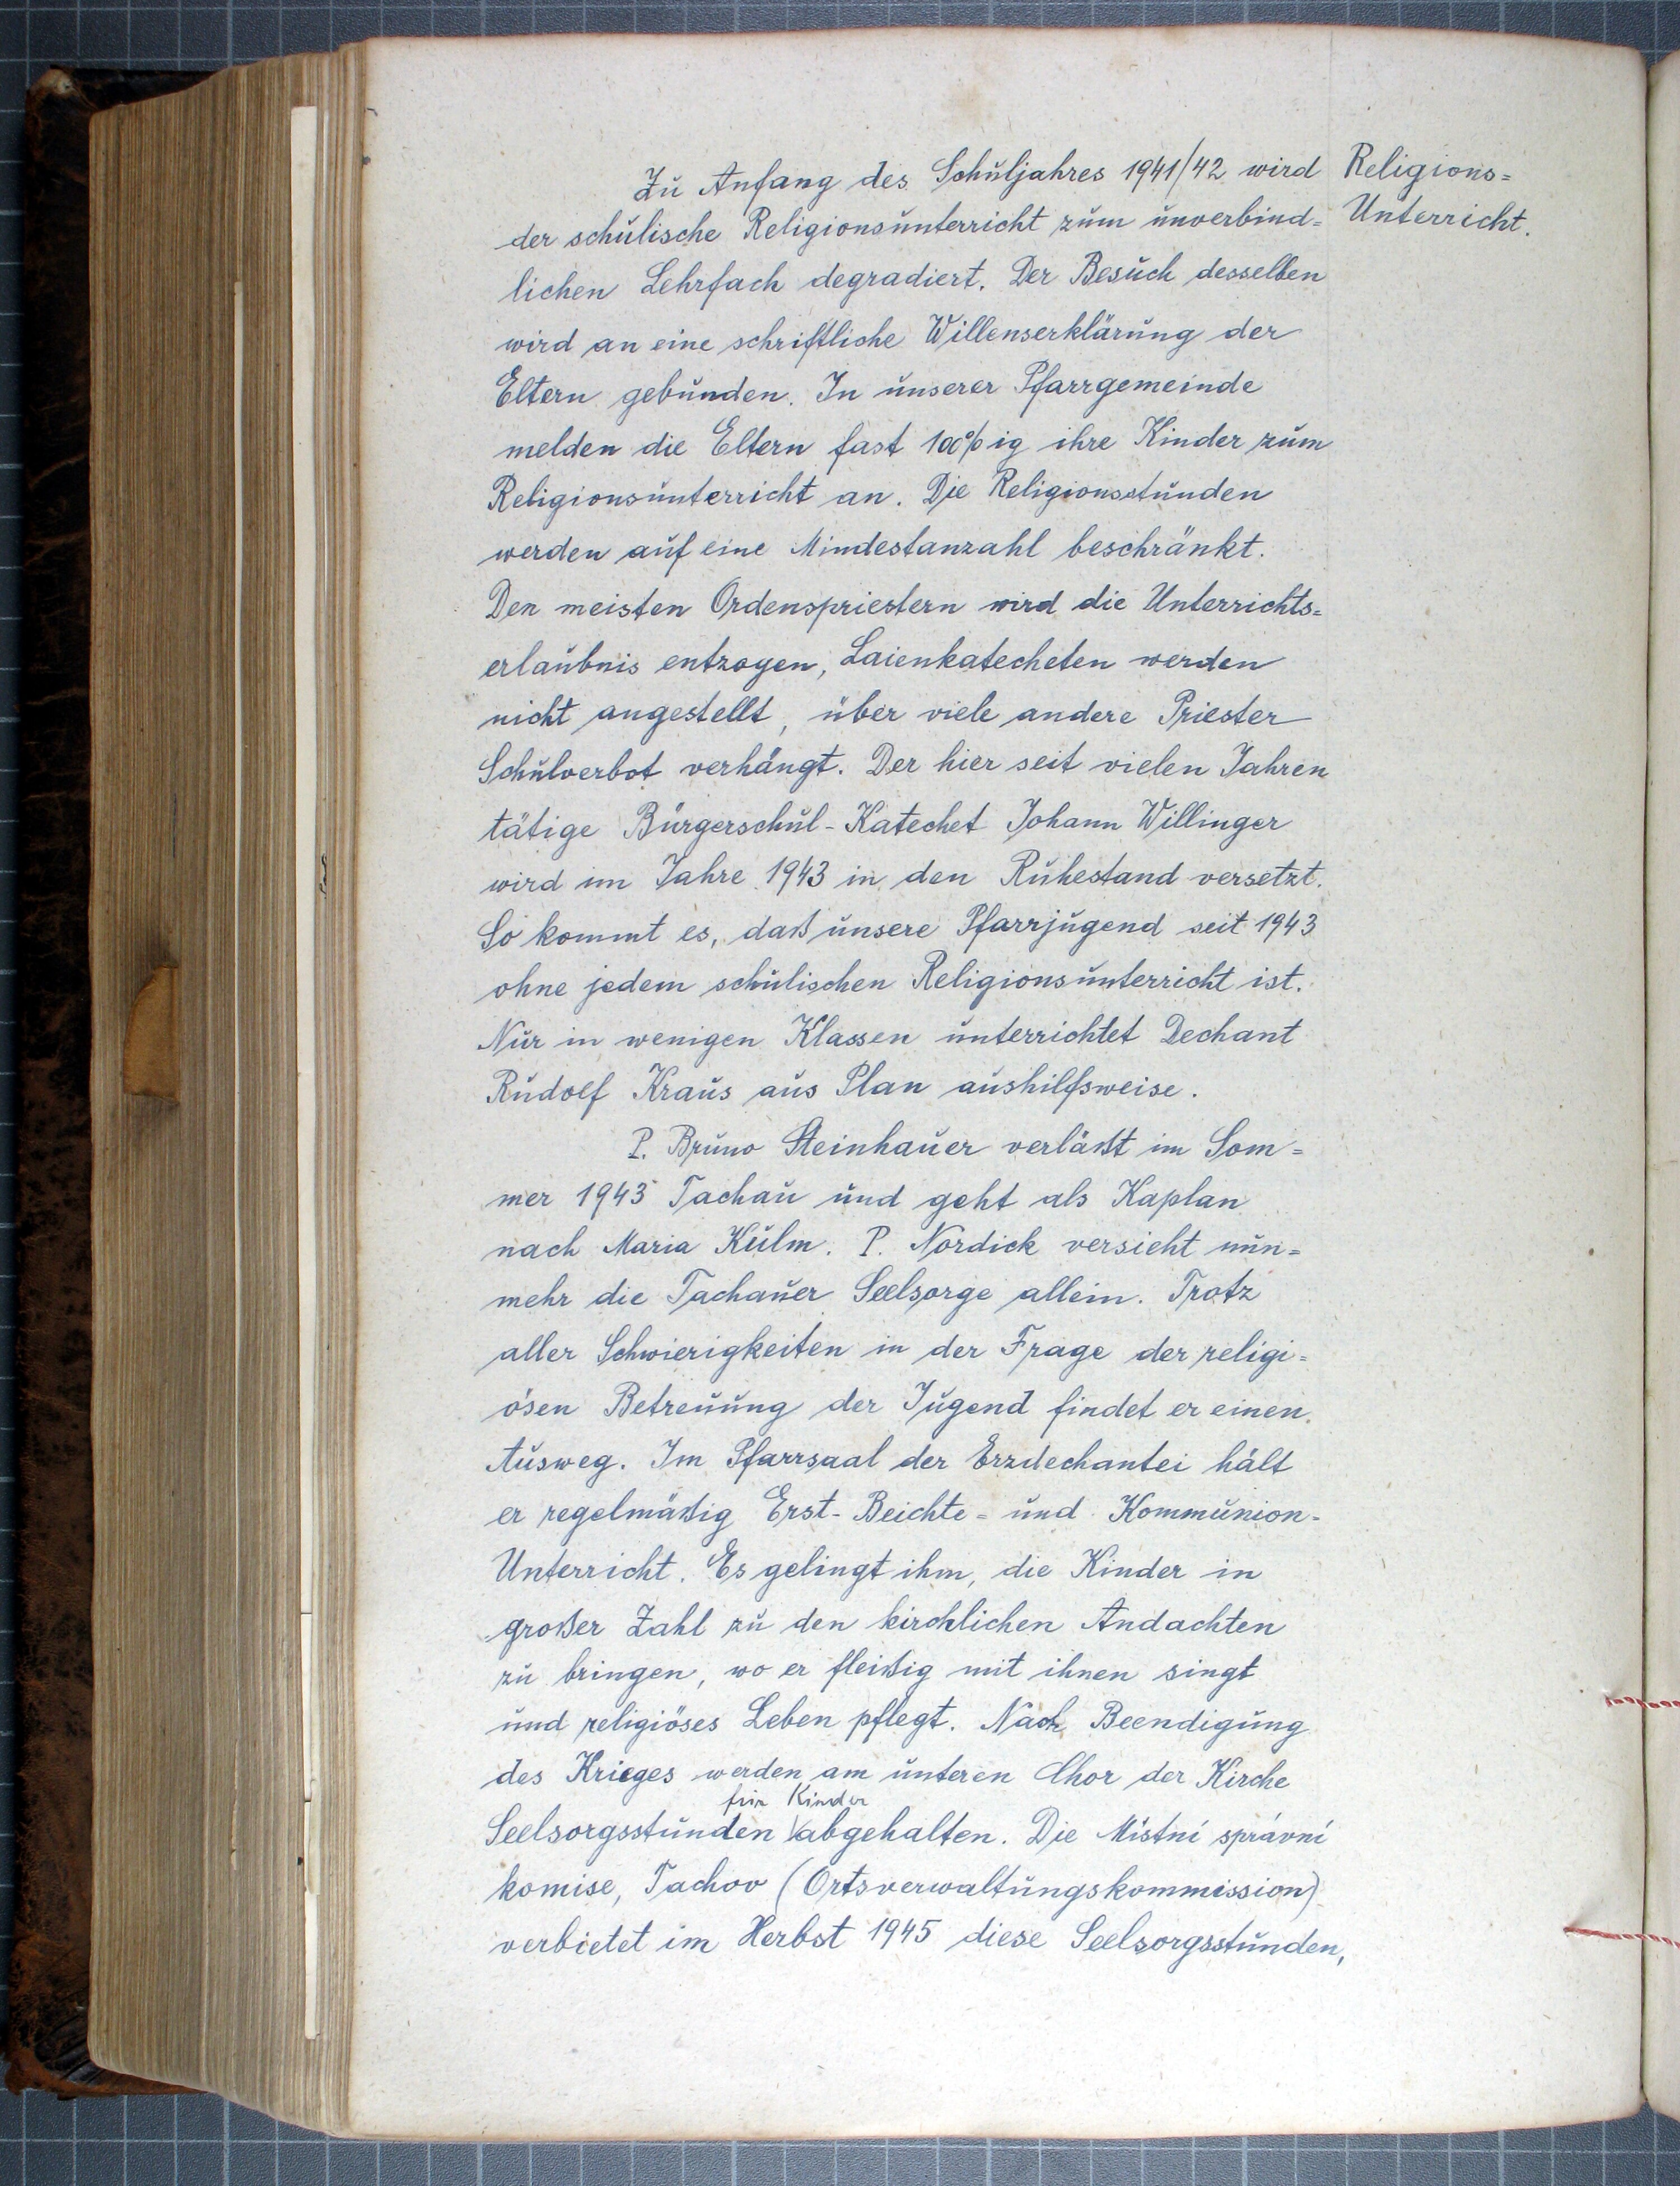 Zu Anfang des Schuljahres 1941/42 wird
der schulische Religionsunterricht zum unverbind=
lichen Lehrfach degradiert. Der Besuch desselben
wird an eine schriftliche Willenserklärung der
Eltern gebunden. In unserer Pfarrgemeinde
melden die Eltern fast 100%ig ihre Kinder zum
Religionsunterricht an. Die Religionsstunden
werden auf eine Mindestanzahl beschränkt.
Den meisten Ordenspriestern wird die Unterrichts=
erlaubnis entzogen, Laienkatecheten werden
nicht angestellt, über viele andere Priester
Schulverbot verhängt. Der hier seit vielen Jahren
tätige Bürgerschul-Katechet Johann Willinger
wird im Jahre 1943 in den Ruhestand versetzt.
So kommt es, daß unsere Pfarrjugend seit 1943
ohne jedem schulischen Religionsunterricht ist.
Nur in wenigen Klassen unterrichtet Dechant
Rudolf Kraus aus Plan aushilfsweise.
P. Bruno Steinhauer verläßt im Som=
mer 1943 Tachau und geht als Kaplan
nach Maria Kulm. P. Nordick versieht nun=
mehr die Tachauer Seelsorge allein. Trotz
aller Schwierigkeiten in der Frage der religi=
ösen Betreuung der Jugend findet er einen
Ausweg. Im Pfarrsaal der Erzdechantei hält
er regelmäßig Erst-Beichte= und Kommunion-
Unterricht. Es gelingt ihm, die Kinder in
großer Zahl zu den kirchlichen Andachten
zu bringen, wo er fleißig mit ihnen singt
und religiöses Leben pflegt. Nach Beendigung
des Krieges werden am unteren Chor der Kirche
für Kinder
Seelsorgsstunden abgehalten. Die Místní správní
komise, Tachov (Ortsverwaltungskommission)
verbietet im Herbst 1945 diese Seelsorgsstunden,
Religions=
Unterricht.